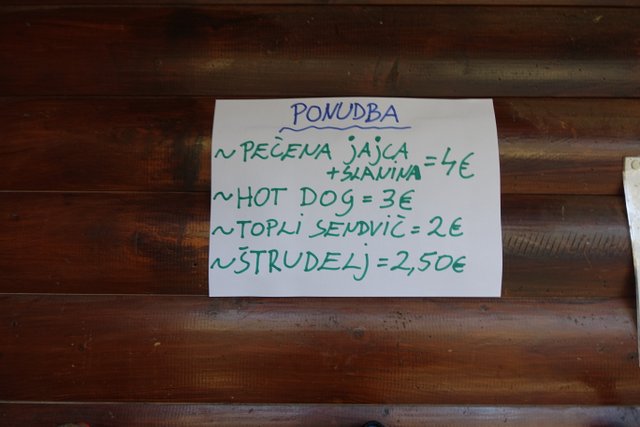 PONUDBA
~ PEČENA jAjCA
+ SLANINA = 4€
~ HOT DOG = 3€
~ TOPLI SENDVIČ = 2€
~ ŠTRUDELj = 2,50€